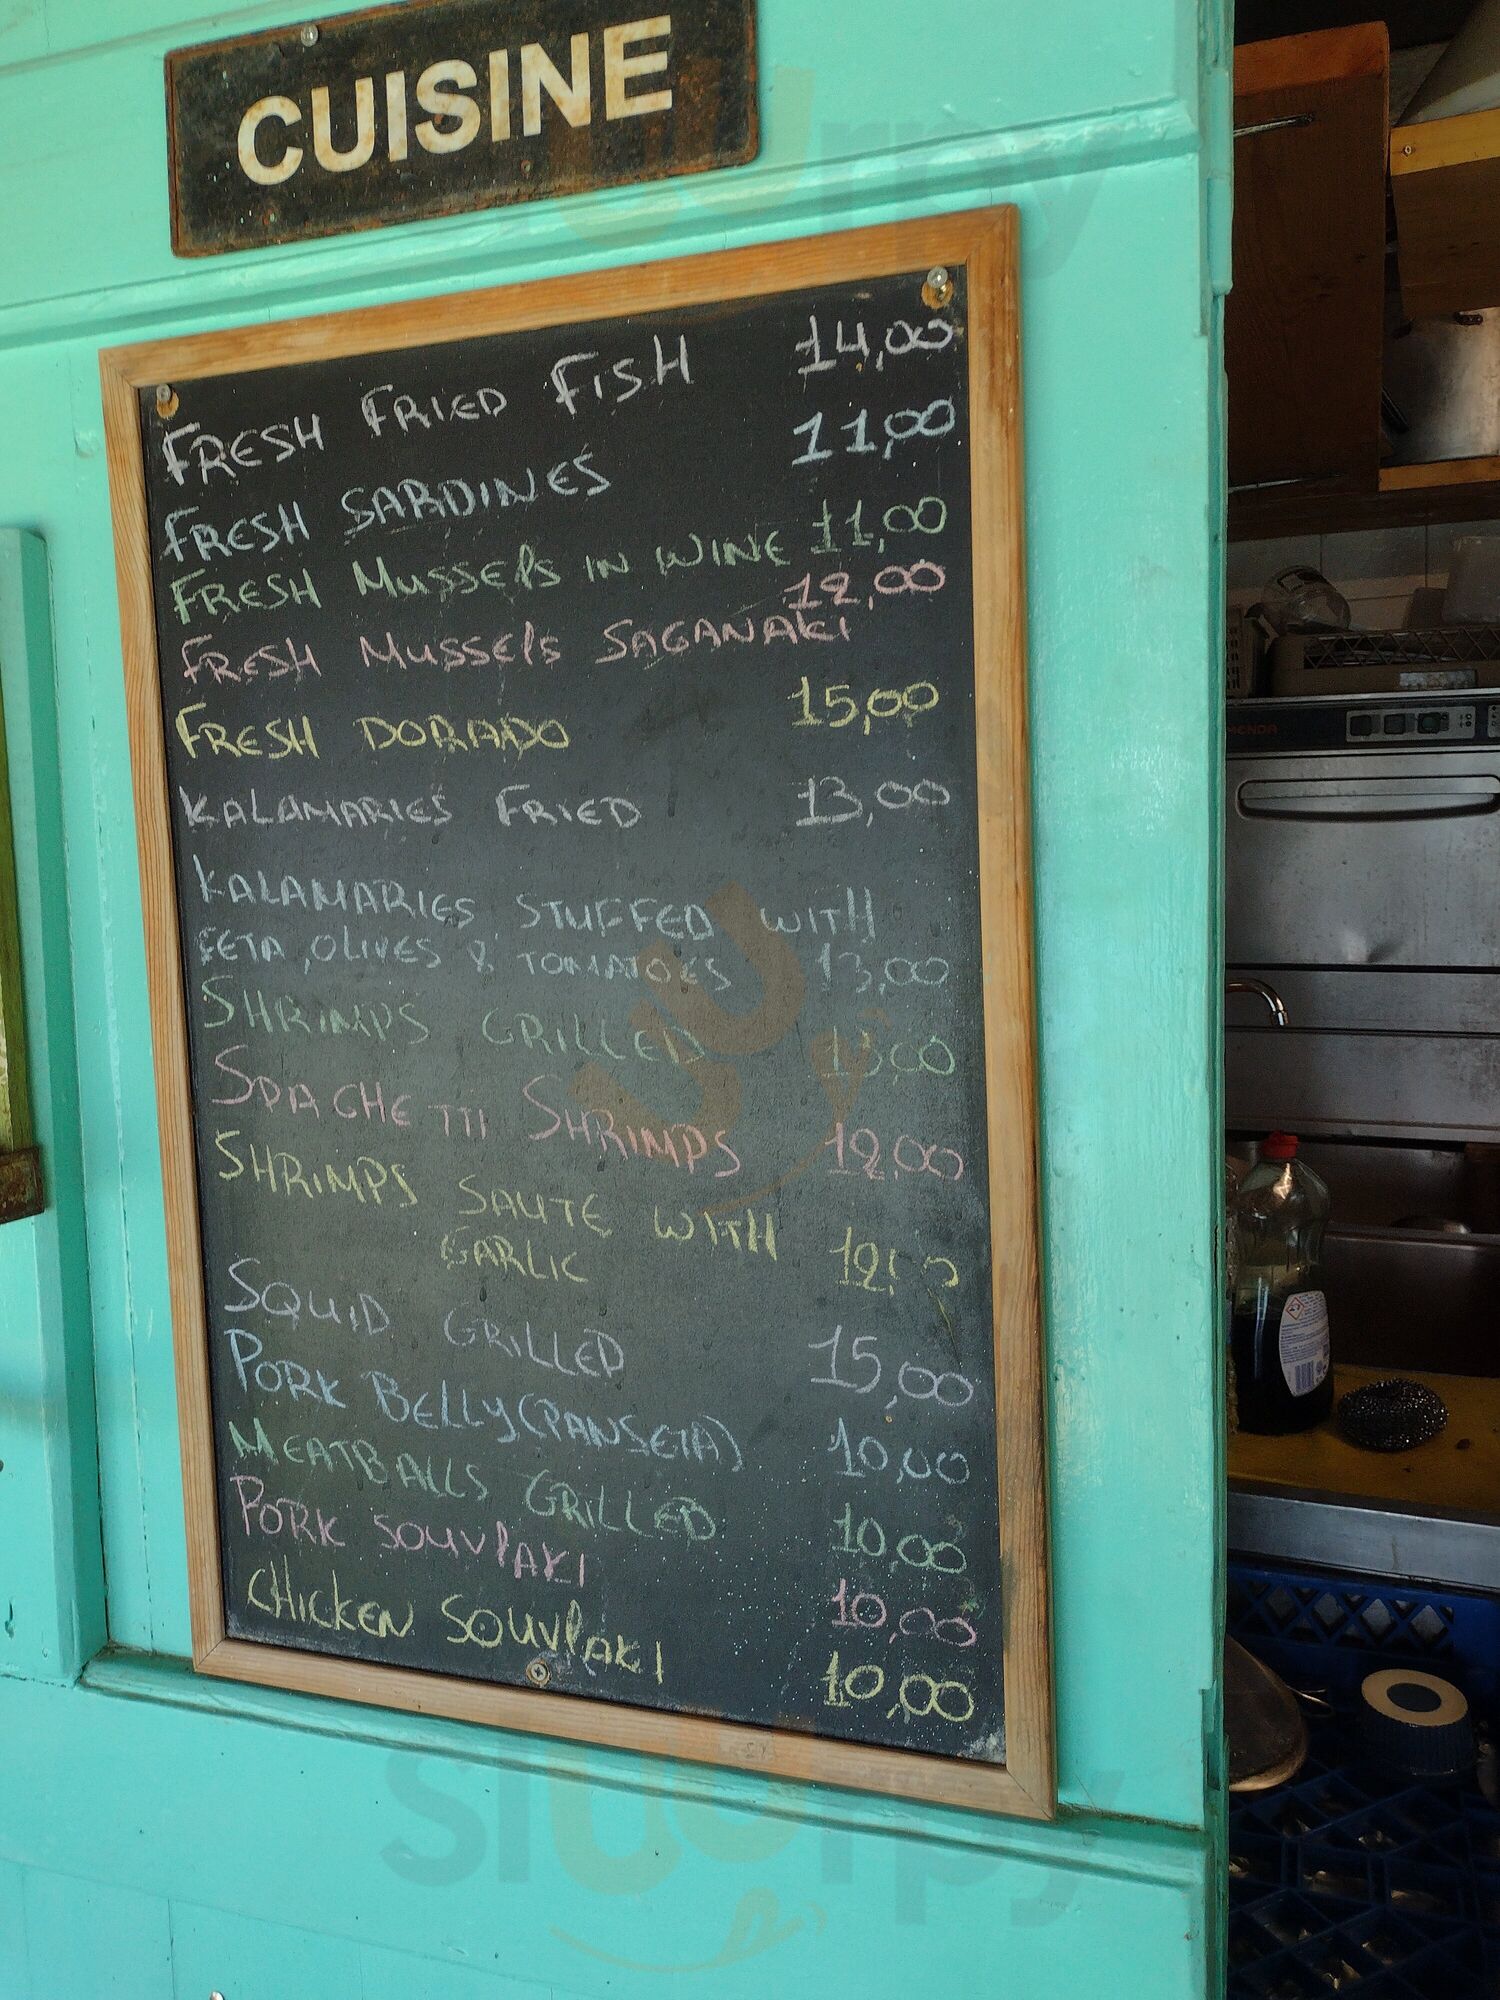 CUISINE
FRESH FRIED FISH 14,00
FRESH SARDINES 11,00
FRESH MUSSEls IN WINE 11,00
FRESH MUSSEls SAGANAKI 12,00
FRESH DORADO 15,00
KALAMARIES FRIED 13,00
KALAMARIES STUFFED WITH
FETA, OLIVES & TOMATOES 13,00
SHRIMPS GRILLED
SPAGHETTI SHRIMPS 12,00
SHRIMPS SAUTE WITH
GARLIC
SQUID GRILLED 15,00
PORK BELLY (PANSETA) 10,00
MEATBALLS GRILLED 10,00
PORK SOUVlAKI 10,00
CHICKEN SOUVlAKI 10,00
sluurpy